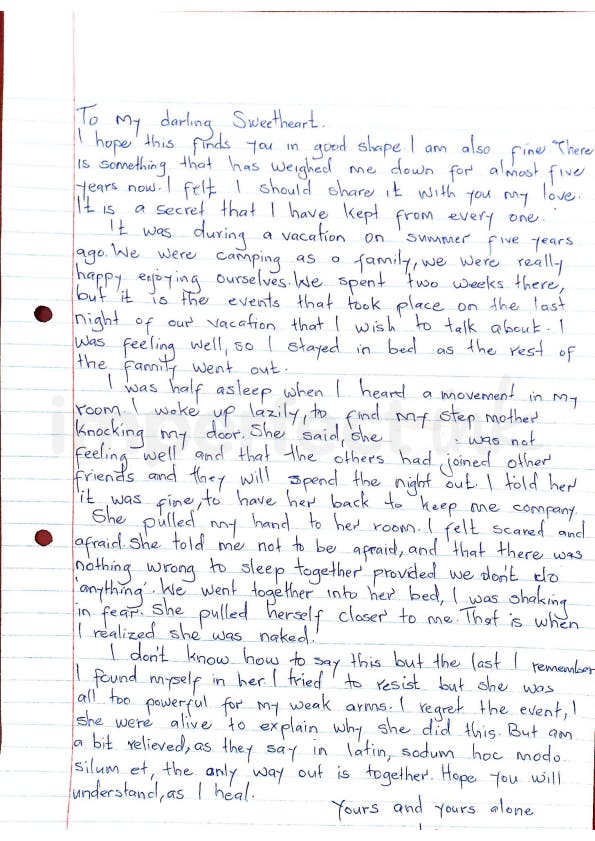 To My darling Sweetheart.
I hope this finds you in good shape I am also fine There
is something that has weighed me down for almost five
years now. I felt I should share it with you my love.
It is a secret that I have kept from every one.
It was during a vacation on summer five years
ago. We were camping as a family, we were really
happy enjoying ourselves. We spent two weeks there,
but it is the events that took place on the last
night of our vacation that I wish to talk about. I
was feeling well, so I stayed in bed as the rest of
the family went out.
I was half asleep when I heard a movement in my
room. I woke up lazily, to find my step mother
knocking my door. She said, she was not
feeling well and that the others had joined other
friends and they will spend the night out. I told her
it was fine, to have her back to keep me company.
She pulled my hand to her room. I felt scared and
afraid. She told me not to be afraid, and that there was
nothing wrong to sleep together provided we don't do
'anything'. We went together into her bed, I was shaking
in fear. She pulled herself closer to me. That is when
I realized she was naked.
I don't know how to say this but the last I remember
I found myself in her. I tried to resist but she was
all too powerful for my weak arms. I regret the event, I
she were alive to explain why she did this. But am
a bit relieved, as they say in latin, sodum hoc modo
silum et, the only way out is together. Hope you will
understand, as I heal.
Yours and yours alone